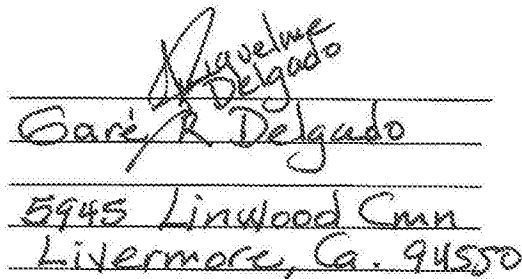 Riquelme
Delgado
Garé R Delgado
5945 Linwood Cmn
Livermore, Ca. 94550